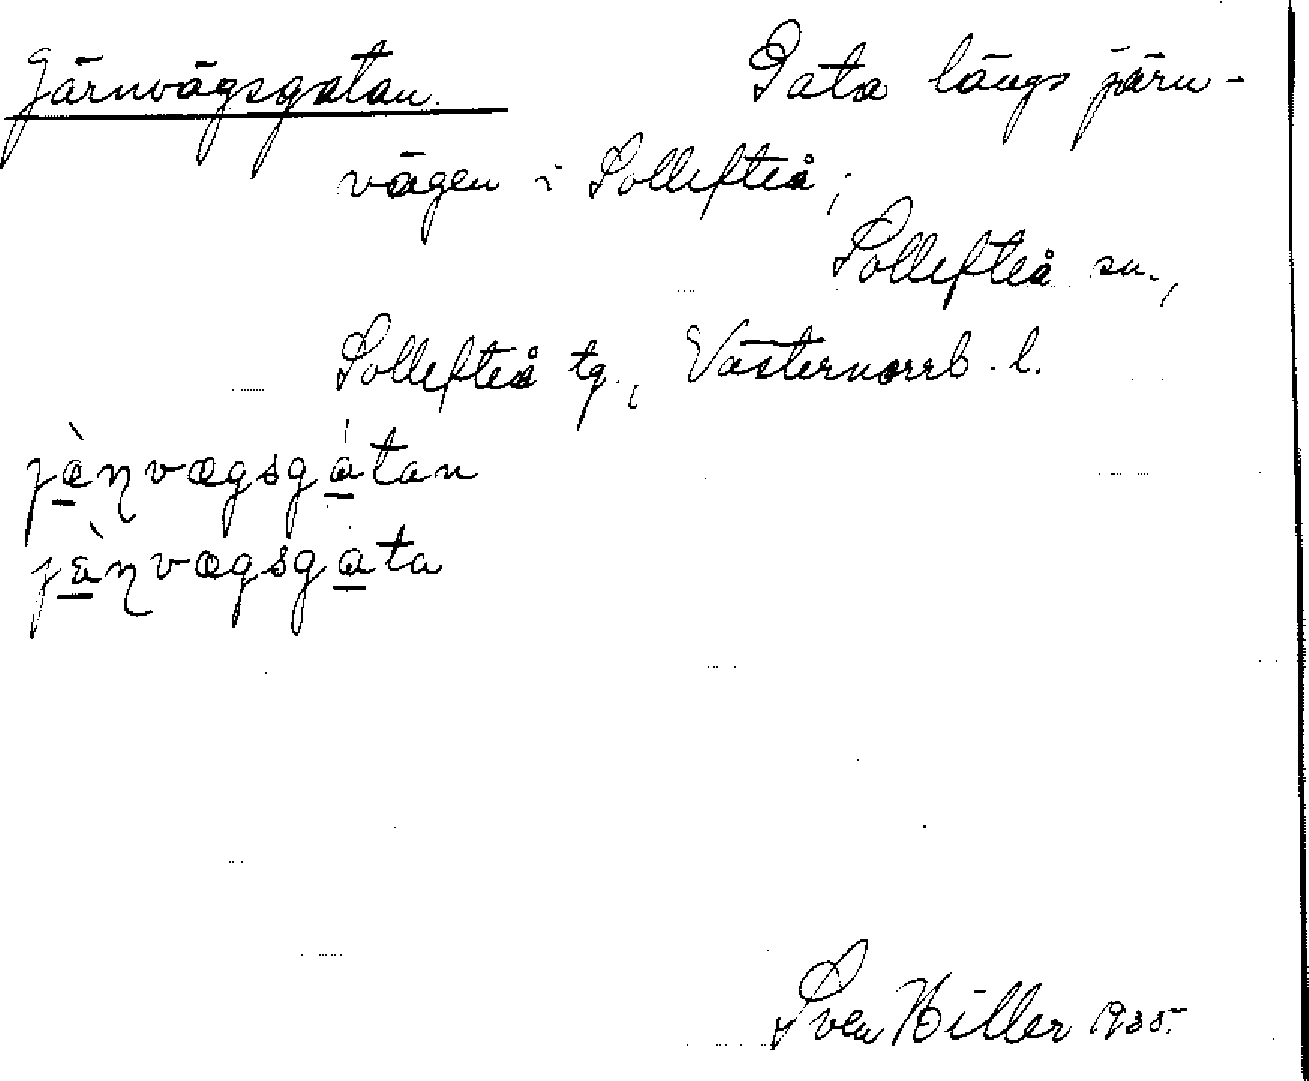 Järnvägsgatan. Gata längs järn-
vägen i Sollefteå;
Sollefteå sn.,
Sollefteå tg., Västernorrl. l.
jæ̀ɳvægsgátan
jæ̀ɳvægsgáta
Sven Hiller 1935.